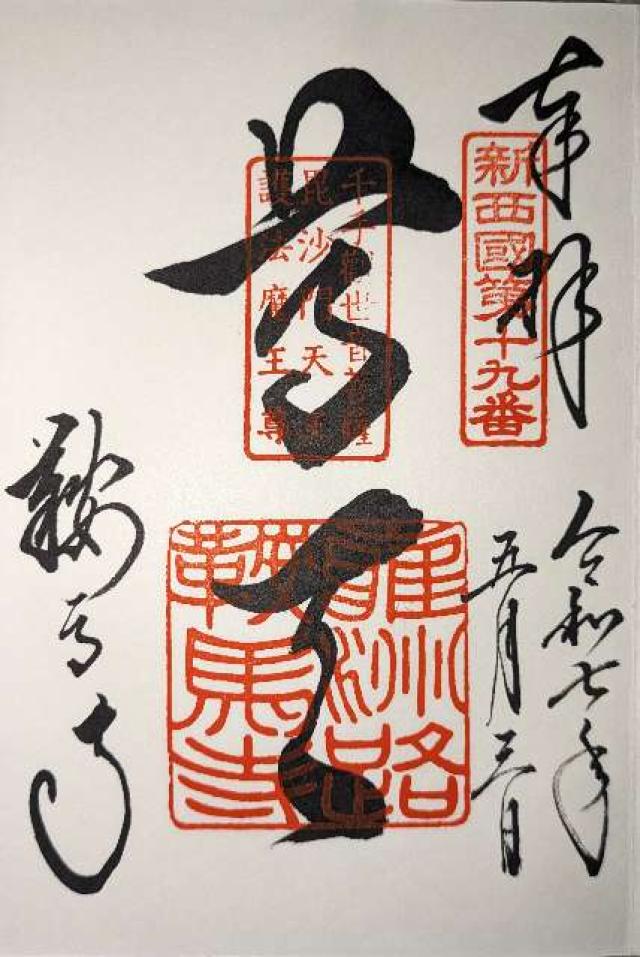 奉拝
新西國第十九番
令和七年
五月三日
千手觀世音菩薩
毘沙門天王
護法魔王尊
尊天
雍洲路
鞍馬寺
鞍馬寺